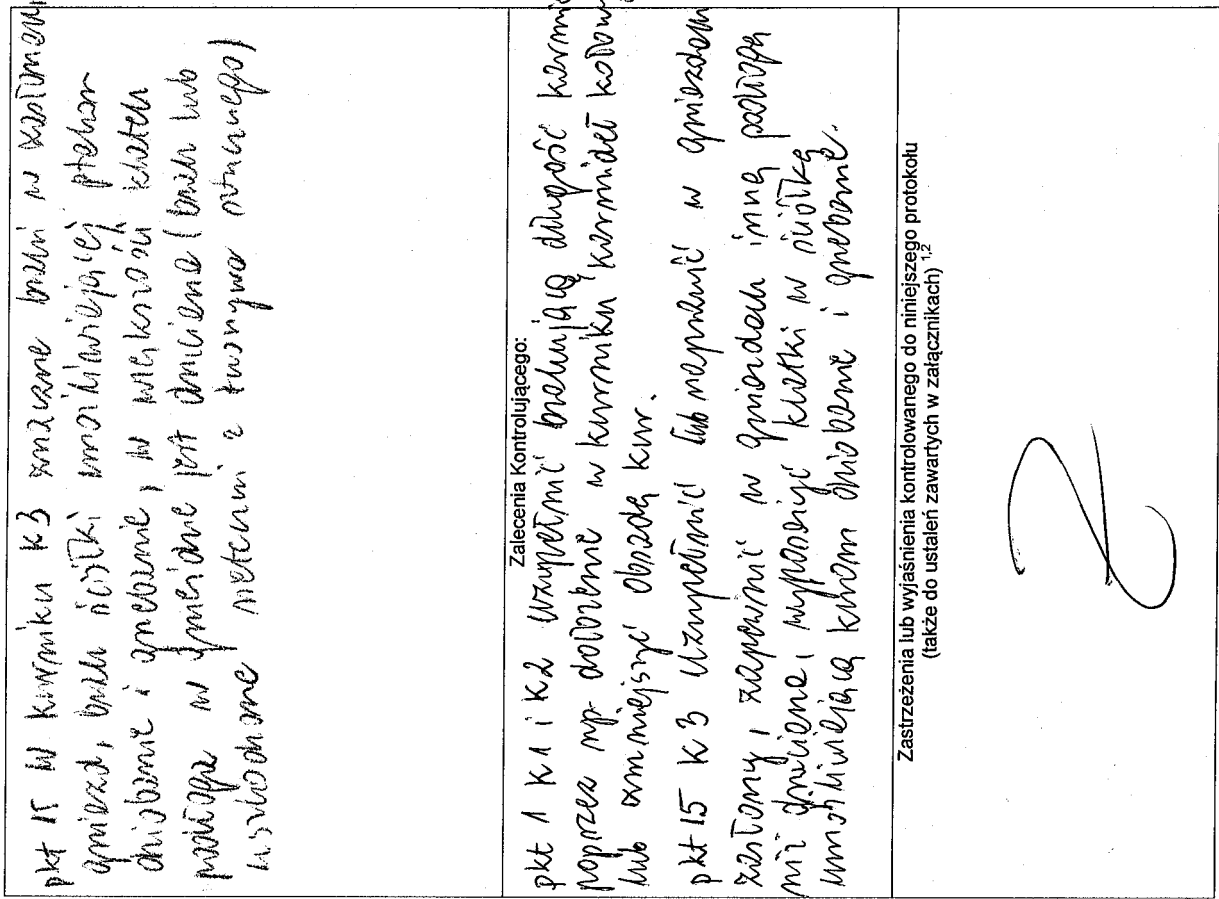 pkt 15 W kurniku K3 znaczne braki w zasłonach
gniazd, brak ściółki umożliwiającej ptakom
dziobanie i grzebanie, w większości klatek
podłoga w gnieździe jest druciana (brak lub
uszkodzone maty z tworzywa sztucznego)
Zalecenia Kontrolującego:
pkt 1 K1 i K2 uzupełnić brakującą długość karmideł
poprzez np. dołożenie w kurniku karmideł
lub zmniejszyć obsadę kur.
pkt 15 K3 Uzupełnić lub naprawić w gniazdach
zasłony, zapewnić w gniazdach inną podłogę
niż druciana, wyposażyć klatki w ściółkę
umożliwiającą kurom dziobanie i grzebanie.
Zastrzeżenia lub wyjaśnienia kontrolowanego do niniejszego protokołu
(także do ustaleń zawartych w załącznikach) 1,2